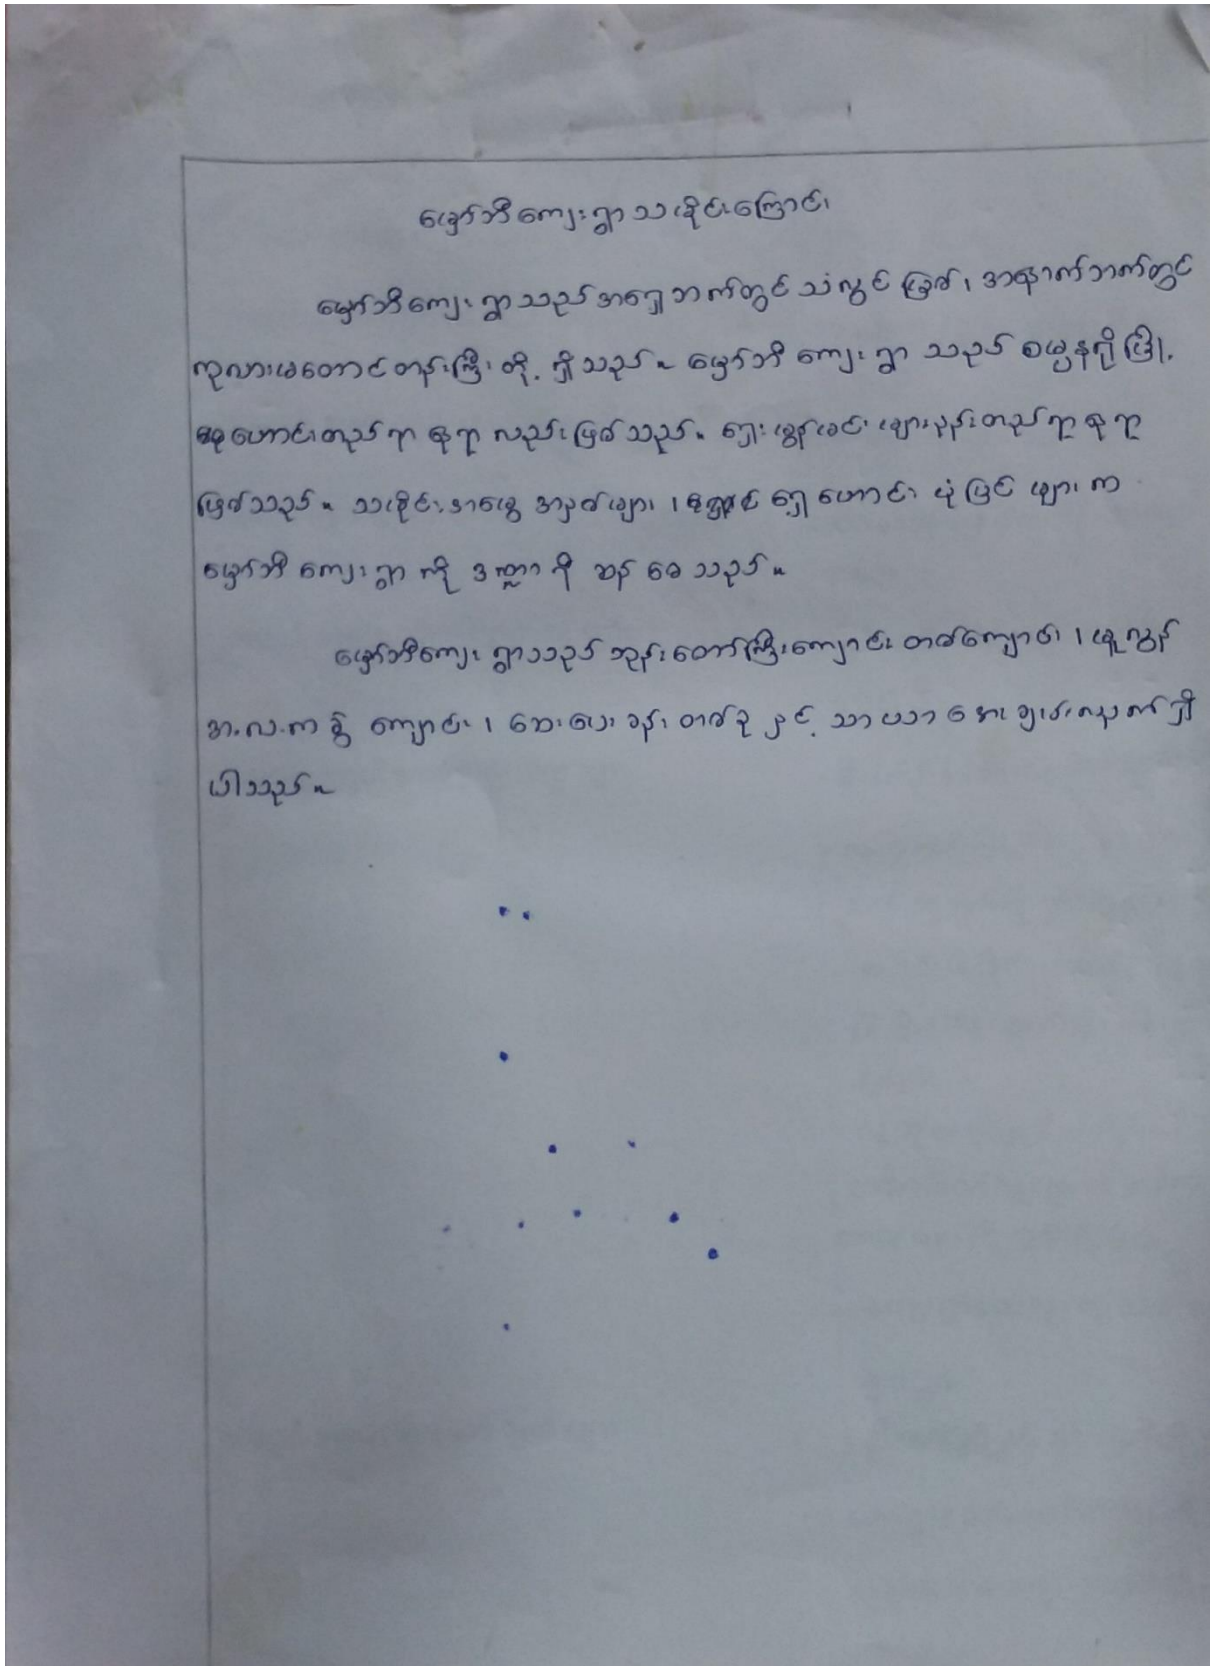 မှော်ဘီကျေးရွာသမိုင်းကြောင်း
မှော်ဘီကျေးရွာသည် အရှေ့ဘက်တွင် သံလွင်မြစ်၊ အနောက်ဘက်တွင်
ကုလားမတောင်တန်းကြီး တို့ ရှိသည်။ မှော်ဘီ ကျေးရွာ သည် စမ္ပနဂိုမြို့
ဟောင်းတည်ရာ နေရာ လည်းဖြစ်သည်။ ရှေးမွန်မင်းများနန်းတည်ရာ နေရာ
ဖြစ်သည်။ သမိုင်းအမွေ အနှစ်များ၊ ရှေးဟောင်း ပုံပြင် များ က
မှော်ဘီ ကျေးရွာ ကို ဒဏ္ဍာရီ ဆန် စေ သည်။
မှော်ဘီကျေးရွာသည် ဘုန်းတော်ကြီးကျောင်း တစ်ကျောင်း၊ မူလွန်
အ.လ.က ခွဲ ကျောင်း၊ ဆေးပေးခန်း တစ်ခု နှင့် သာယာ အေးချမ်းလျက်ရှိ
ပါသည်။